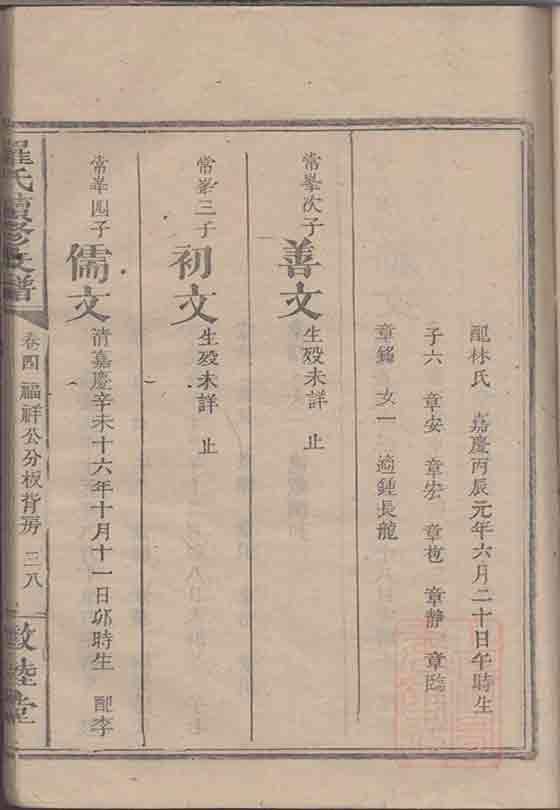 配林氏 嘉慶丙辰元年六月二十日午時生
子六 章安 章宏 章苞 章靜 章臨
章銘 女一 適鍾長龍
常峯次子 善文 生歿未詳 止
常峯三子 初文 生歿未詳 止
常峯四子 儒文 清嘉慶辛未十六年十月十一日卯時生 配李
羅氏續修族譜 卷四 福祥公分板背房 三八 敦睦堂